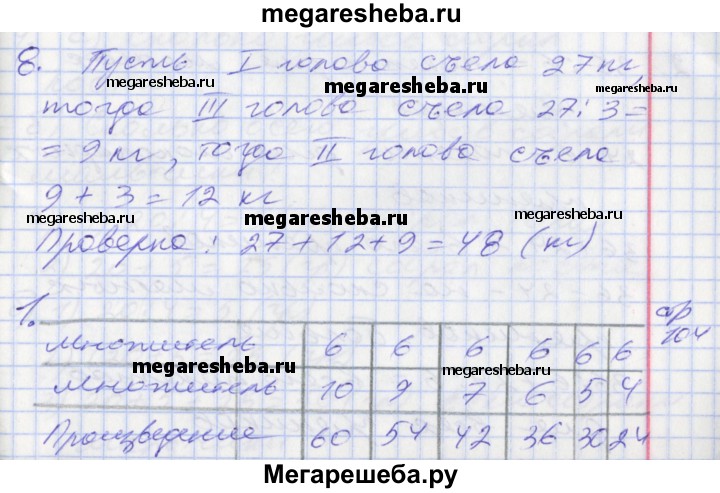 megaresheba.ru
8. Пусть I голова съела 27 кг,
megaresheba.ru megaresheba.ru megaresheba.ru
тогда III голова съела 27 : 3 =
= 9 кг, тогда II голова съела
9 + 3 = 12 кг
megaresheba.ru megaresheba.ru megaresheba.ru
Проверка: 27 + 12 + 9 = 48 (кг)
1. стр 104
Множитель 6 6 6 6 6 6
megaresheba.ru megaresheba.ru
Множитель 10 9 7 6 5 4
Произведение 60 54 42 36 30 24
Мегарешеба.ру